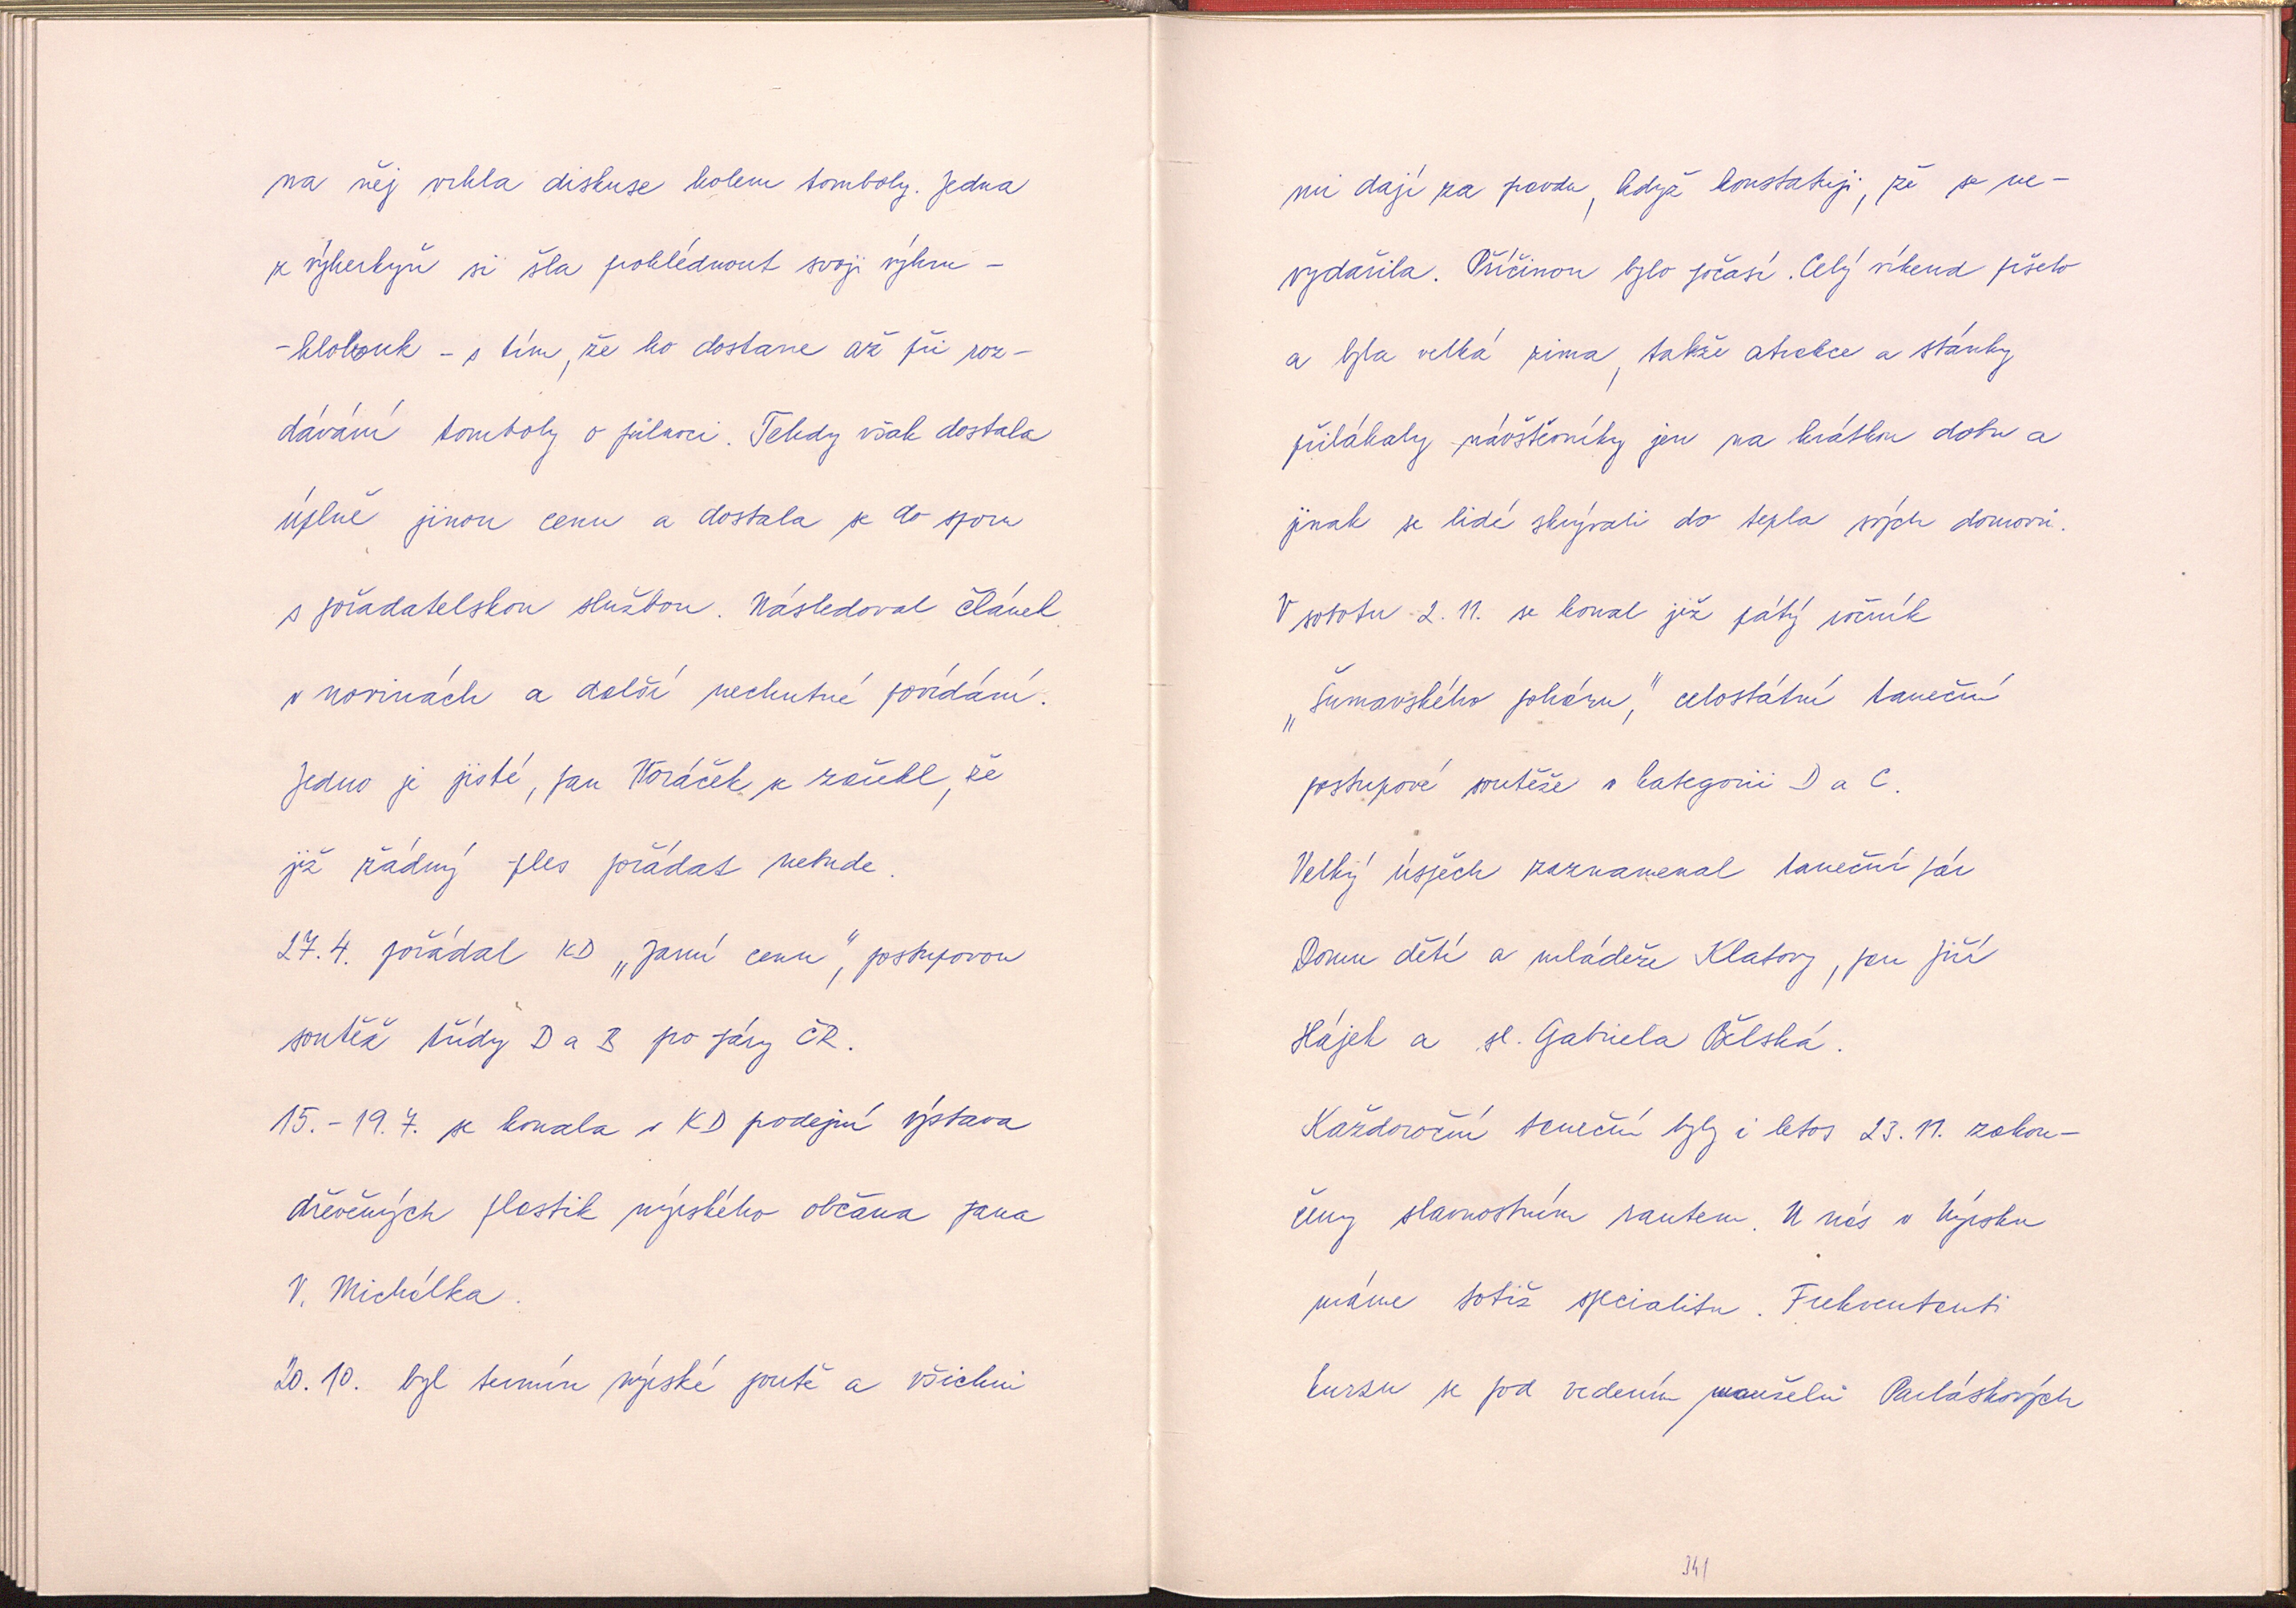 na něj vrhla diskuse kolem tomboly. Jedna
z výherkyň si šla pohlédnout svoji výhru -
- klobouk - s tím, že ho dostane až při roz-
dávání tomboly o půlnoci. Tehdy však dostala
úplně jinou cenu a dostala se do sporu
s pořadatelskou službou. Následoval článek
v novinách a další nechutné povídání.
Jedno je jisté, pan Voráček se zařekl, že
již žádný ples pořádat nebude.
27. 4. pořádal KD „Jarní cenu", postupovou
soutěž třídy D a B pro páry ČR.
15. - 19. 7. se konala v KD prodejní výstava
dřevěných plastik nýrského občana Jana
V. Michálka.
20. 10. byl termín nýrské poutě a všichni
mi dají za pravdu, když konstatuji, že se ne-
vydařila. Příčinou bylo počasí. Celý víkend pršelo
a byla velká zima, takže atrakce a stánky
přilákaly návštěvníky jen na krátkou dobu a
jinak se lidé skrývali do tepla svých domovů.
V sobotu 2. 11. se konal již pátý ročník
„Šumavského poháru," celostátní taneční
postupové soutěže v kategorii D a C.
Velký úspěch zaznamenal taneční pár
Domu dětí a mládeže Klatovy, pan Jiří
Hájek a sl. Gabriela Bělská.
Každoroční taneční byly i letos 23. 11. zakon-
čeny slavnostním rautem. U nás v Nýrsku
máme totiž specialitu. Frekventanti
kurzu se pod vedením manželů Parláskových
341